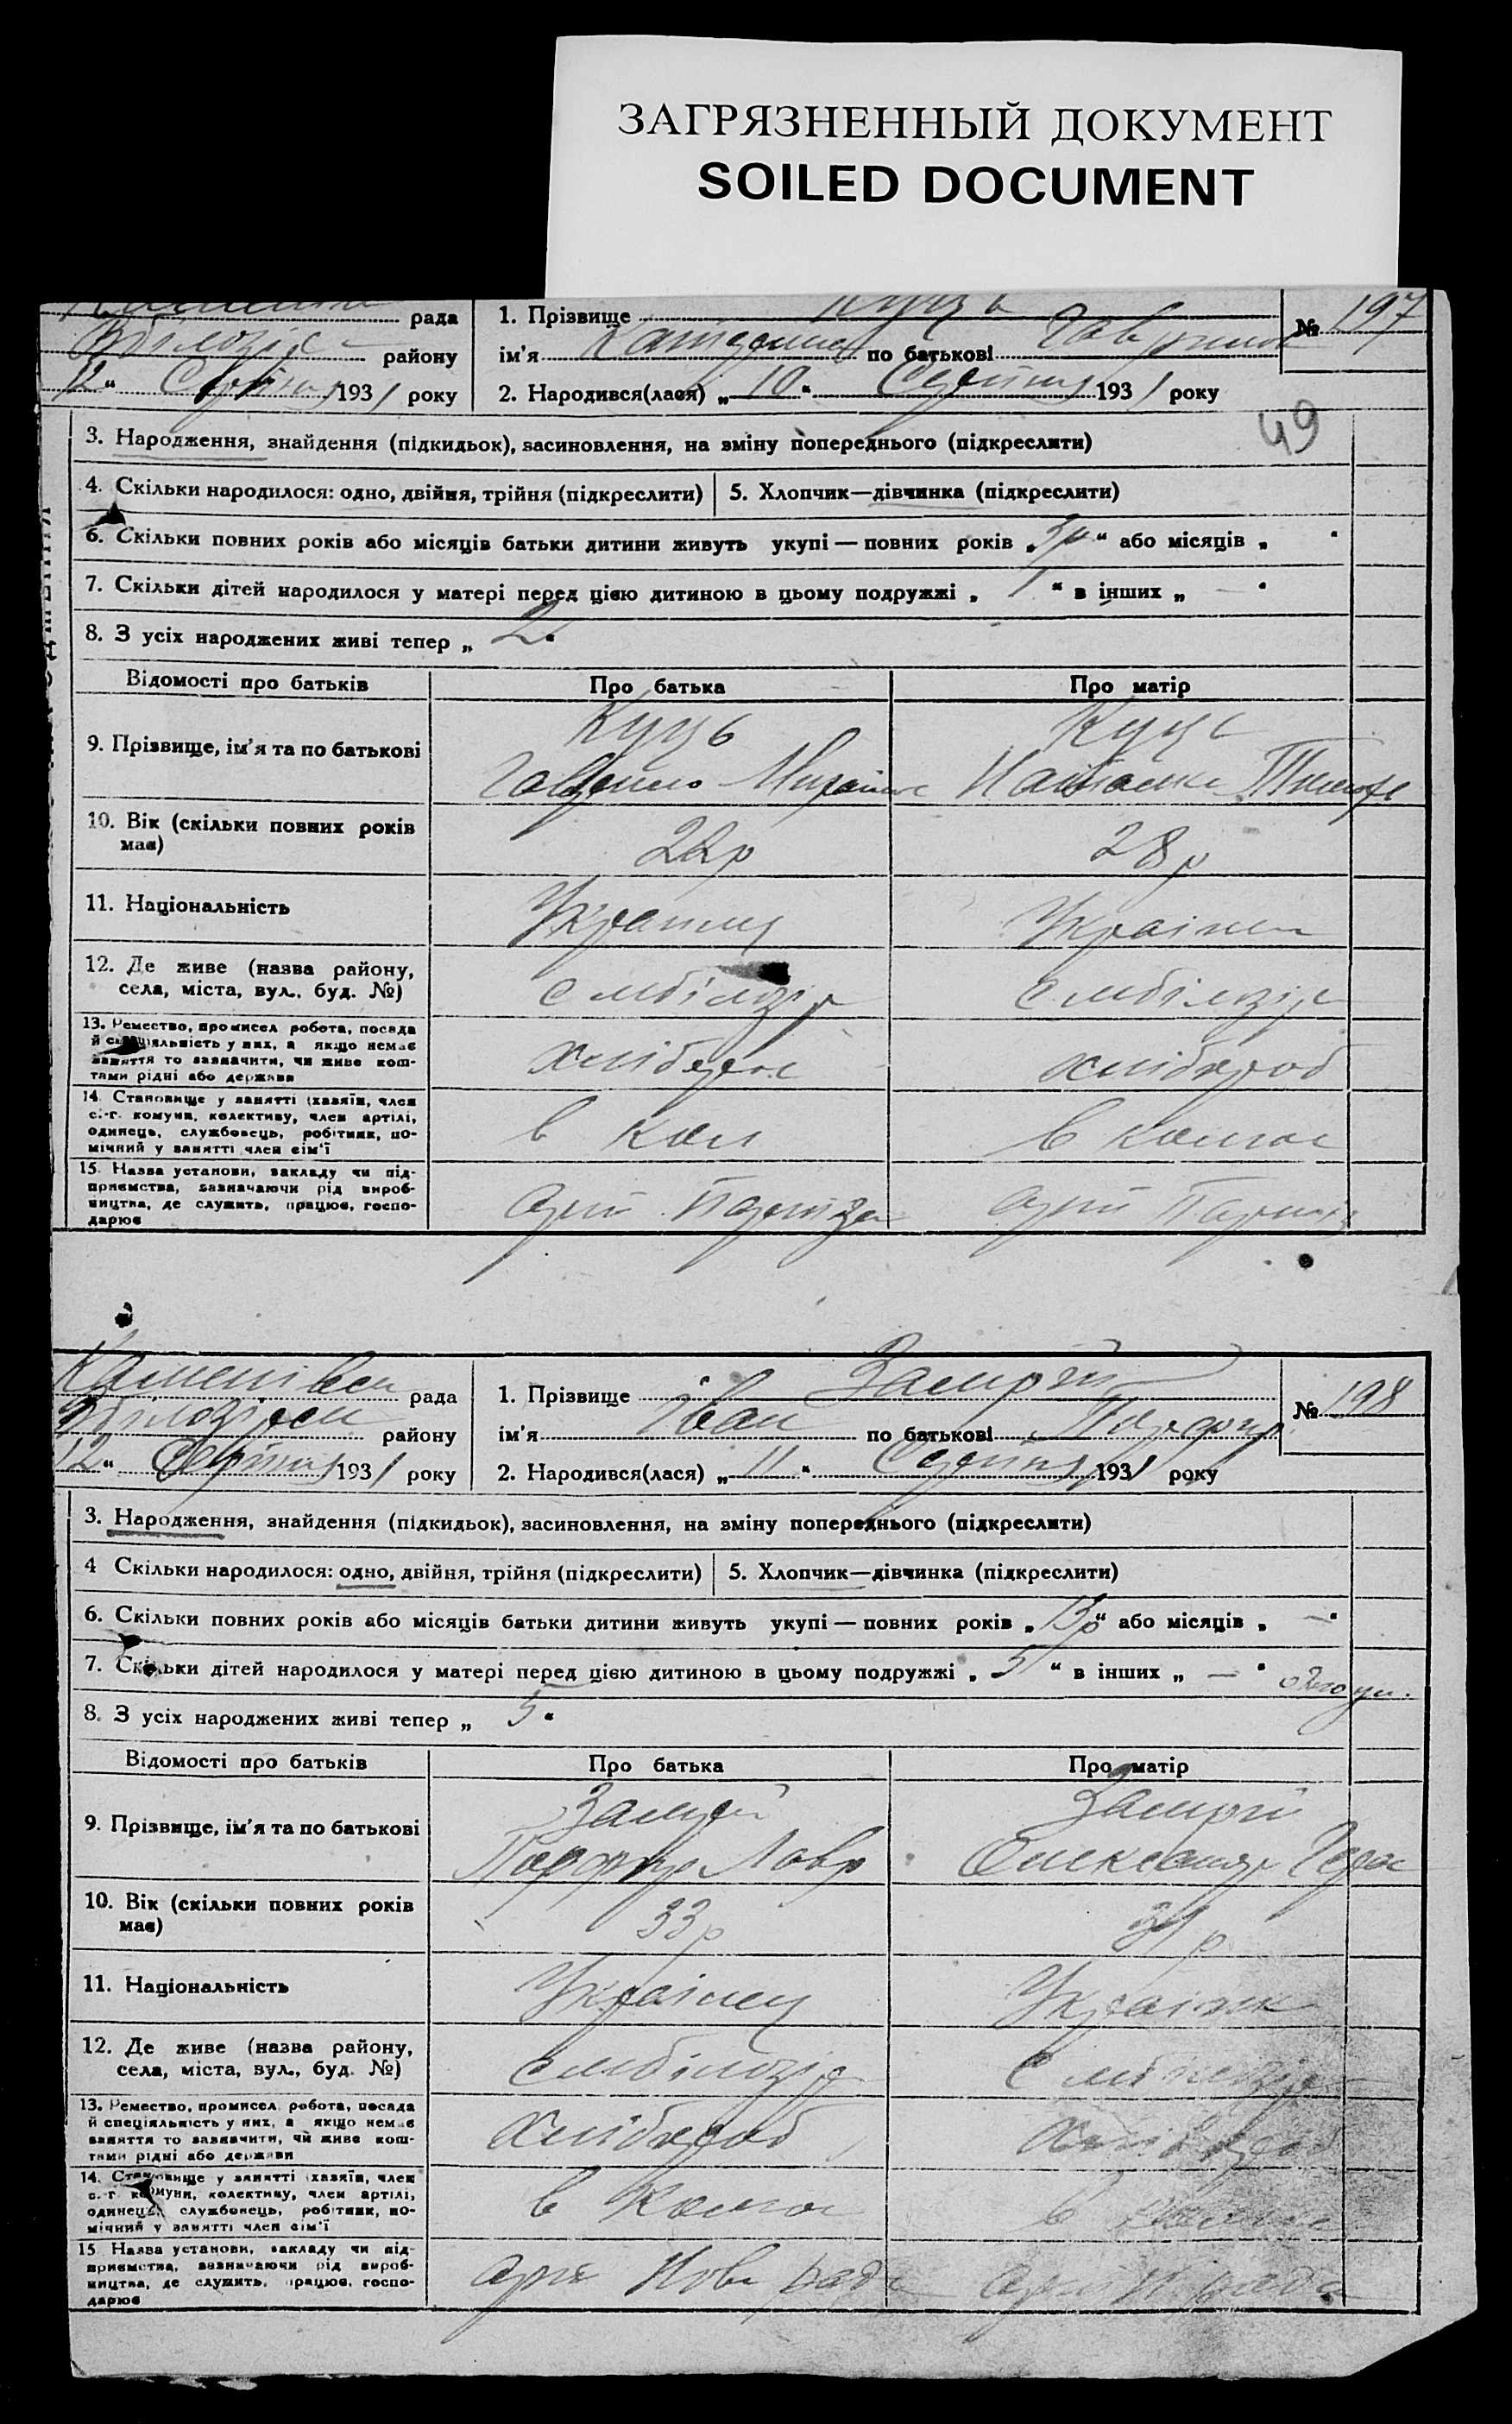 ЗАГРЯЗНЕННЫЙ ДОКУМЕНТ
SOILED DOCUMENT
рада
району
12 " Серпня 1931 року
1. Прізвище Куць
ім'я Катерина по батькові
2. Народився(лася) „ 10 " Серпня 1931 року
№ 197
49
3. Народження, знайдення (підкидьок), засиновлення, на зміну попереднього (підкреслити)
4. Скільки народилося: одно, двійня, трійня (підкреслити) 5. Хлопчик—дівчинка (підкреслити)
6. Скільки повних років або місяців батьки дитини живуть укупі — повних років „ 3р " або місяців „ "
7. Скільки дітей народилося у матері перед цією дитиною в цьому подружжі „ 1 " в інших „ — "
8. З усіх народжених живі тепер „ 2 "
Відомості про батьків Про батька Про матір
9. Прізвище, ім'я та по батькові
Куць
Куць
10. Вік (скільки повних років має)
22р
28р
11. Національність
12. Де живе (назва району, села, міста, вул., буд. №)
с мбілозір
с мбілозір
13. Ремество, промисел робота, посада
й спеціяльність у них, а якщо немає
заняття то зазначити, чи живе кош-
тами рідні або держави
хлібороб
14. Становище у занятті (хазяїн, член
с.-г. комуни, колективу, член артілі,
одинець, службовець, робітник, по-
мічний у занятті член сім'ї
в кол
в колгос
15. Назва установи, закладу чи під-
приємства, зазначаючи рід вироб-
ництва, де служить, працює, госпо-
дарює
рада
району
12 " Серпня 1931 року
1. Прізвище Замрій
ім'я Іван по батькові Парфир
2. Народився(лася) „ 11 " Серпня 1931 року
№ 198
3. Народження, знайдення (підкидьок), засиновлення, на зміну попереднього (підкреслити)
4 Скільки народилося: одно, двійня, трійня (підкреслити) 5. Хлопчик—дівчинка (підкреслити)
6. Скільки повних років або місяців батьки дитини живуть укупі — повних років „ 13р " або місяців „ — "
7. Скільки дітей народилося у матері перед цією дитиною в цьому подружжі „ 5 " в інших „ — "
8. З усіх народжених живі тепер „ 5 "
Відомості про батьків Про батька Про матір
9. Прізвище, ім'я та по батькові
Замрій
Замрій
Парфир Лавр
Олександр Герас
10. Вік (скільки повних років має)
33р
31р
11. Національність
Українец
12. Де живе (назва району, села, міста, вул., буд. №)
с мбілозір
с мбілозір
13. Ремество, промисел робота, посада
й спеціяльність у них, а якщо немає
заняття то зазначити, чи живе кош-
тами рідні або держави
хлібороб
хлібороб
14. Становище у занятті (хазяїн, член
с.-г. комуни, колективу, член артілі,
одинець, службовець, робітник, по-
мічний у занятті член сім'ї
в колгос
15. Назва установи, закладу чи під-
приємства, зазначаючи рід вироб-
ництва, де служить, працює, госпо-
дарює